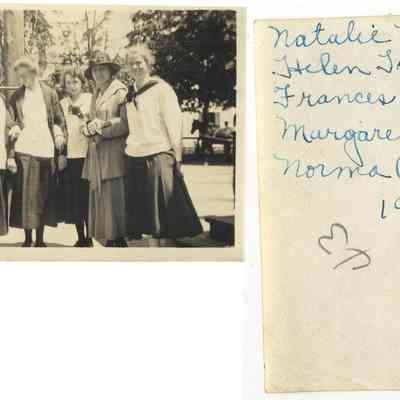 Natalie
Helen
Frances
Margare
Norma
19